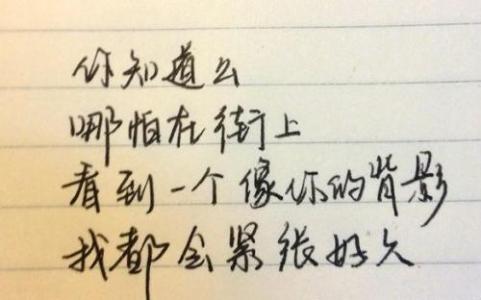 你知道么
哪怕在街上
看到一个像你的背影
我都会紧张好久